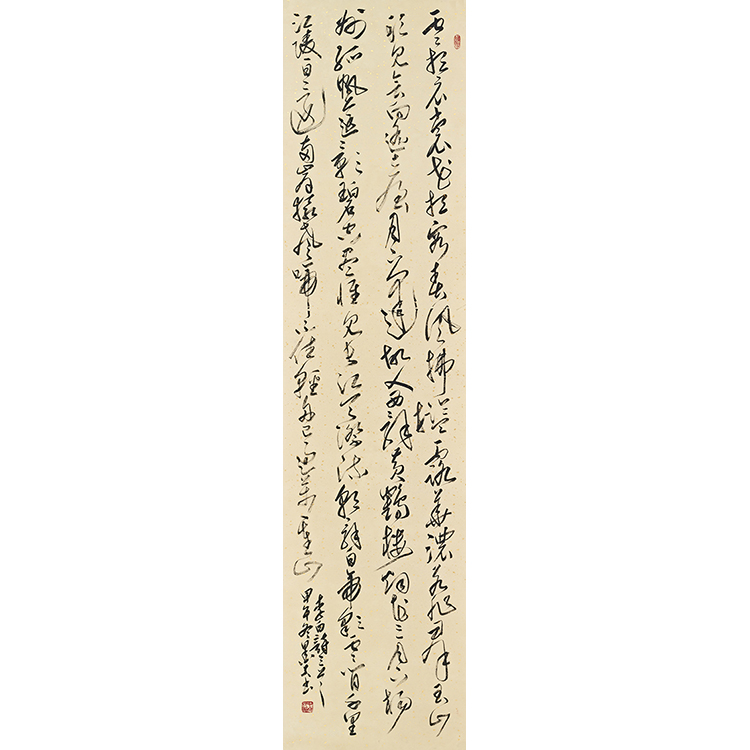 雲想衣裳花想容春風拂檻露華濃若非群玉山
頭見會向瑤台月下逢故人西辭黃鶴樓煙花三月下揚
州孤帆遠影碧空盡惟見長江天際流朝辭白帝彩雲間千里
江陵一日還兩岸猿聲啼不住輕舟已過萬重山
李白詩三首
甲午冬